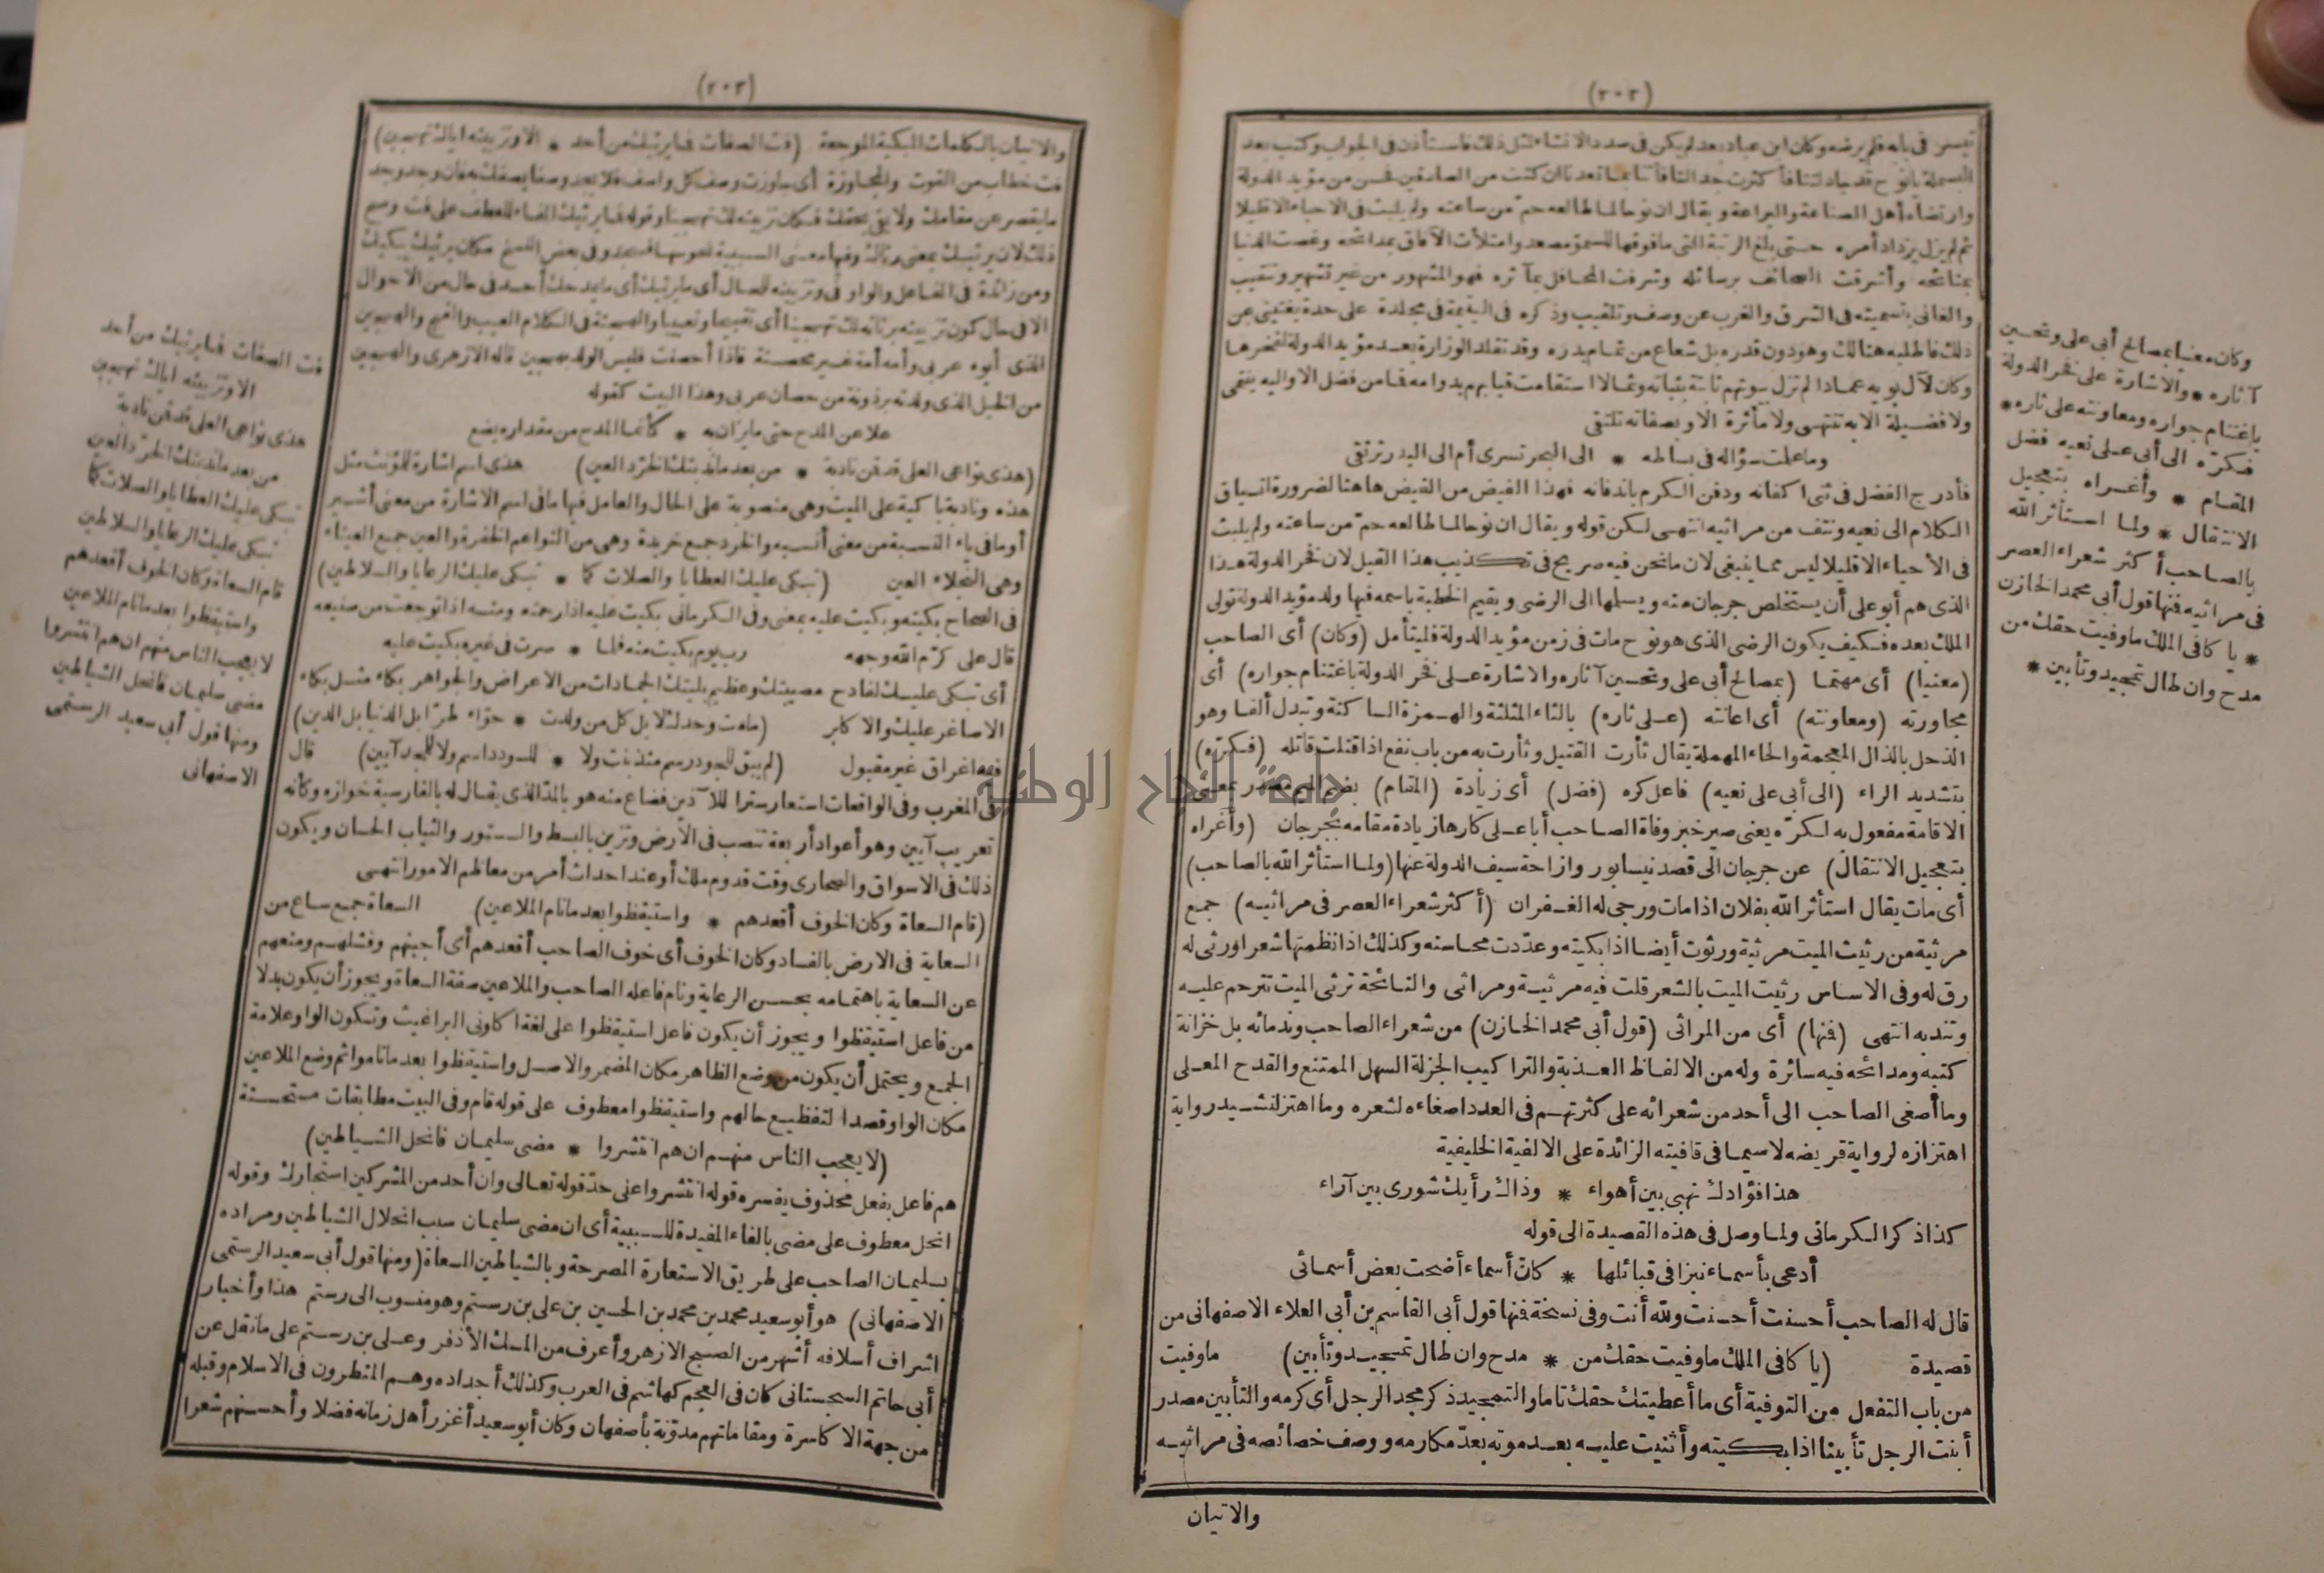 (٢٠٢)
وارتضاه أهل الصناعة والبراعة ويقال ان نوحا لما طالعه حمّ من ساعته ولم يلبث فى الاحياء الا قليلا
ثم لم يزل يزداد أمره حتى بلغ الرتبة التى ما فوقها للسمو مصعد وامتلأت الآفاق بمدائحه وغصت الدنيا
بمنائحه وأشرقت الصحائف برسائله وشرفت المحافل بمآثره فهو المشهور من غير تشهير وتنقيب
والغانى بتسميته فى الشرق والغرب عن وصف وتلقيب وذكره فى اليتيمة فى مجلدة على حدة يغتينى عن
ذلك فاطلبه هنالك وهو دون قدره بل شعاع من تمام بدره وقد تقلد الوزارة بعد مؤيد الدولة لفخرها
وكان لآل بويه عمادا لم تزل بيوتهم ثابتة بثباته وثمالا استقامت قبابهم بدوامه فما من فضل الا واليه ينتمى
ولا فضيلة الا به تنتهى ولا مأثرة الا وبصفاته تلتقى
وما علمت سؤاله فى بساطه * الى البحر تسرى أم الى البدر ترتقى
فأدرج الفضل فى ثنى اكفانه ودفن الكرم باندفانه فهذا الفيض من القيض هاهنا لضرورة انسياق
الكلام الى نعيه ونتف من مراثيه انتهى لكن قوله ويقال ان نوحا لما طالعه حمّ من ساعته ولم يلبث
فى الأحياء الا قليلا ليس مما ينبغى لان ما نحن فيه صريح فى تكذيب هذا القيل لان فخر الدولة هذا
الذى هم أبو على أن يستخلص جرجان منه ويسلمها الى الرضى ويقيم الخطبة باسمه فيها ولد مؤيد الدولة تولى
الملك بعده فكيف يكون الرضى الذى هو نوح مات فى زمن مؤيد الدولة فليتأمل (وكان) أى الصاحب
(معنيا) أى مهتما (بمصالح أبى على وتحسين آثاره والاشارة على فخر الدولة باغتنام جواره) أى
مجاورته (ومعاونته) أى اعانته (على ثاره) بالثاء المثلثة والهمزة الساكنة وتبدل ألفا وهو
الذحل بالذال المعجمة والحاء المهملة يقال ثأرت القتيل وثأرت به من باب نفع اذا قتلت قاتله (فكرّه)
بتشديد الراء (الى أبى على نعيه) فاعل كره (فضل) أى زيادة (المقام) بضم الميم مصدر بمعنى
الاقامة مفعول به لكرّه يعنى صير خبر وفاة الصاحب أبا على كارها زيادة مقامه بجرجان (وأغراه
بتعجيل الانتقال) عن جرجان الى قصد نيسابور وازاحة سيف الدولة عنها (ولما استأثر الله بالصاحب)
أى مات يقال استأثر الله بفلان اذا مات ورجى له الغفران (أكثر شعراء العصر فى مراثيه) جمع
مرثية من رثيت الميت مرثية ورثوت أيضا اذا بكيته وعدّدت محاسنه وكذلك اذا نظمتها شعرا ورثى له
رق له وفى الاساس رثيت الميت بالشعر قلت فيه مرثية ومراثى والنائحة ترثى الميت تترحم عليه
وتندبه انتهى (فمنها) أى من المراثى (قول أبى محمد الخازن) من شعراء الصاحب وندمائه بل خزانة
كتبه ومدائحه فيه سائرة وله من الالفاظ العذبة والتراكيب الجزلة السهل الممتنع والقدح المعلى
وما أصغى الصاحب الى أحد من شعرائه على كثرتهم فى العدد اصغاءه لشعره وما اهتز لنشيد رواية
اهتزازه لرواية قريضه لا سيما فى قافيته الزائدة على الالفية الخليفية
هذا فؤادك نهبى بين أهواء * وذاك رأيك شورى بين آراء
كذا ذكر الكرمانى ولما وصل فى هذه القصيدة الى قوله
أدعى بأسماء نبزا فى قبائلها * كانّ أسماء أضحت بعض أسمائى
قال له الصاحب أحسنت أحسنت ولله أنت وفى نسخة فمنها قول أبى القاسم بن أبى العلاء الاصفهانى من
قصيدة (يا كافى الملك ما وفيت حقك من * مدح وان طال تمجيد وتأبين) ما وفيت
من باب التفعل من التوفية أى ما أعطيتك حقك تاما والتمجيد ذكر مجد الرجل أى كرمه والتأبين مصدر
أبنت الرجل تأبينا اذا بكيته وأثنيت عليه بعد موته بعدّ مكارمه ووصف خصائصه فى مراثيه
والاتيان
وكان معنيا بمصالح أبى على وتحسين
آثاره * والاشارة على فخر الدولة
باغتنام جواره ومعاونته على ثاره *
فكرّه الى أبى على نعيه فضل
المقام * وأغراه بتعجيل
الانتقال * ولما استأثر الله
بالصاحب أكثر شعراء العصر
فى مراثيه فمنها قول أبى محمد الخازن
* يا كافى الملك ما وفيت حقك من
مدح وان طال تمجيد وتأبين *
(٢٠٣)
والاتيان بالكلمات المبكية الموجعة (فت الصفات فما يرثيك من أحد * الا وتزيينه اياك تهجين)
فت خطاب من الفوت والمجاوزة أى جاوزت وصف كل واصف فلا يجد وصفا يصفك به فان وجد وجد
ما يقصر عن مقامك ولا يفى بحقك فكان تزيينه لك تهجينا وقوله فما يرثيك الفاء للعطف على فت وصح
ومن زائدة فى الفاعل والواو فى وتزيينه للحال أى ما يرثيك أى ما يمدحك أحد فى حال من الاحوال
الا فى حال كون تزيينه برثائه لك تهجينا أى تقبيحا وتعييبا والهجنة فى الكلام العيب والقبح والهجين
الذى أبوه عربى وأمه أمة غير محصنة فاذا أحصنت فليس الولد بهجين قاله الازهرى والهجين
من الخيل الذى ولدته برذونة من حصان عربى وهذا البيت كقوله
علا عن المدح حتى ما يزان به * كأنما المدح من مقداره يضع
(هذى نواعى العلى قد قن نادبة * من بعد ما ندبتك الخرّد العين) هذى اسم اشارة للمؤنث مثل
هذه ونادبة باكية على الميت وهى منصوبة على الحال والعامل فيها ما فى اسم الاشارة من معنى أشير
أو ما فى ياء النسبة من معنى أنسبه والخرد جمع خريدة وهى من النواعم الخفرة والعين جمع العيناء
وهى النجلاء العين (تبكى عليك العطايا والصلات كما * تبكى عليك الرعايا والسلاطين)
فى الصحاح بكيته وبكيت عليه بمعنى وفى الكرمانى بكيت عليه اذا رحمته ومنه اذا توجعت من صنيعه
قال على كرّم الله وجهه رب يوم بكيت منه فلما * صرت فى غيره بكيت عليه
أى تبكى عليك لفادح مصيبتك وعظيم بليتك الجمادات من الاعراض والجواهر بكاء مثل بكاء
الاصاغر عليك والاكابر (مامت وحدك لا بل كل من ولدت * حوّاء طرّا بل الدنيا بل الدين)
فيه اغراق غير مقبول (لم يبق للجود رسم منذ بنت ولا * للسودد اسم ولا للمجد آيين) قال
فى المغرب وفى الواقعات استعار سترا للآذين فضاع منه هو بالمدّ الذى يقال له بالفارسية خوازه وكأنه
تعريب آيين وهو أعواد أربعة تنصب فى الارض وتزين بالبسط والستور والثياب الحسان ويكون
ذلك فى الاسواق والصحارى وقت قدوم ملك أو عند احداث أمر من معاظم الامور انتهى
(قام السعاة وكان الخوف أقعدهم * واستيقظوا بعد ما نام الملاعين) السعاة جمع ساع من
السعاية فى الارض بالفساد وكان الخوف أى خوف الصاحب أقعدهم أى أجبنهم وفشلهم ومنعهم
عن السعاية باهتمامه بحسن الرعاية ونام فاعله الصاحب والملاعين صفة السعاة ويجوز أن يكون بدلا
من فاعل استيقظوا ويجوز أن يكون فاعل استيقظوا على لغة اكلونى البراغيث وتكون الواو علامة
الجمع ويحتمل أن يكون من وضع الظاهر مكان المضمر والاصل واستيقظوا بعد ما ناموا ثم وضع الملاعين
مكان الواو قصدا لتفظيع حالهم واستيقظوا معطوف على قوله قام وفى البيت مطابقات مستحسنة
(لا يعجب الناس منهم ان هم انتشروا * مضى سليمان فانحل الشياطين)
هم فاعل بفعل محذوف يفسره قوله انتشروا على حدّ قوله تعالى وان أحد من المشركين استجارك وقوله
انحل معطوف على مضى بالفاء المفيدة للسببية أى ان مضى سليمان سبب انحلال الشياطين ومراده
بسليمان الصاحب على طريق الاستعارة المصرحة وبالشياطين السعاة (ومنها قول أبى سعيد الرستمى
الاصفهانى) هو أبو سعيد محمد بن محمد بن الحسين بن على بن رستم وهو منسوب الى رستم هذا وأخبار
اشراف أسلافه أشهر من الصبح الازهر وأعرف من المسك الأذفر وعلى بن رستم على ما نقل عن
أبى حاتم السجستانى كان فى العجم كهاشم فى العرب وكذلك أجداده وهم المنظرون فى الاسلام وقبله
من جهة الاكاسرة ومقاماتهم مدوّنة بأصفهان وكان أبو سعيد أغزر أهل زمانه فضلا وأحسنهم شعرا
فت الصفات فما يرثيك من أحد
الا وتزيينه اياك تهجين
هذى نواعى العلى قد قن نادبة
من بعد ما ندبتك الخرّد العين
تبكى عليك العطايا والصلات كما
تبكى عليك الرعايا والسلاطين
قام السعاة وكان الخوف أقعدهم
واستيقظوا بعد ما نام الملاعين
لا يعجب الناس منهم ان هم انتشروا
مضى سليمان فانحل الشياطين
ومنها قول أبى سعيد الرستمى
الاصفهانى
جامعة النجاح الوطنية